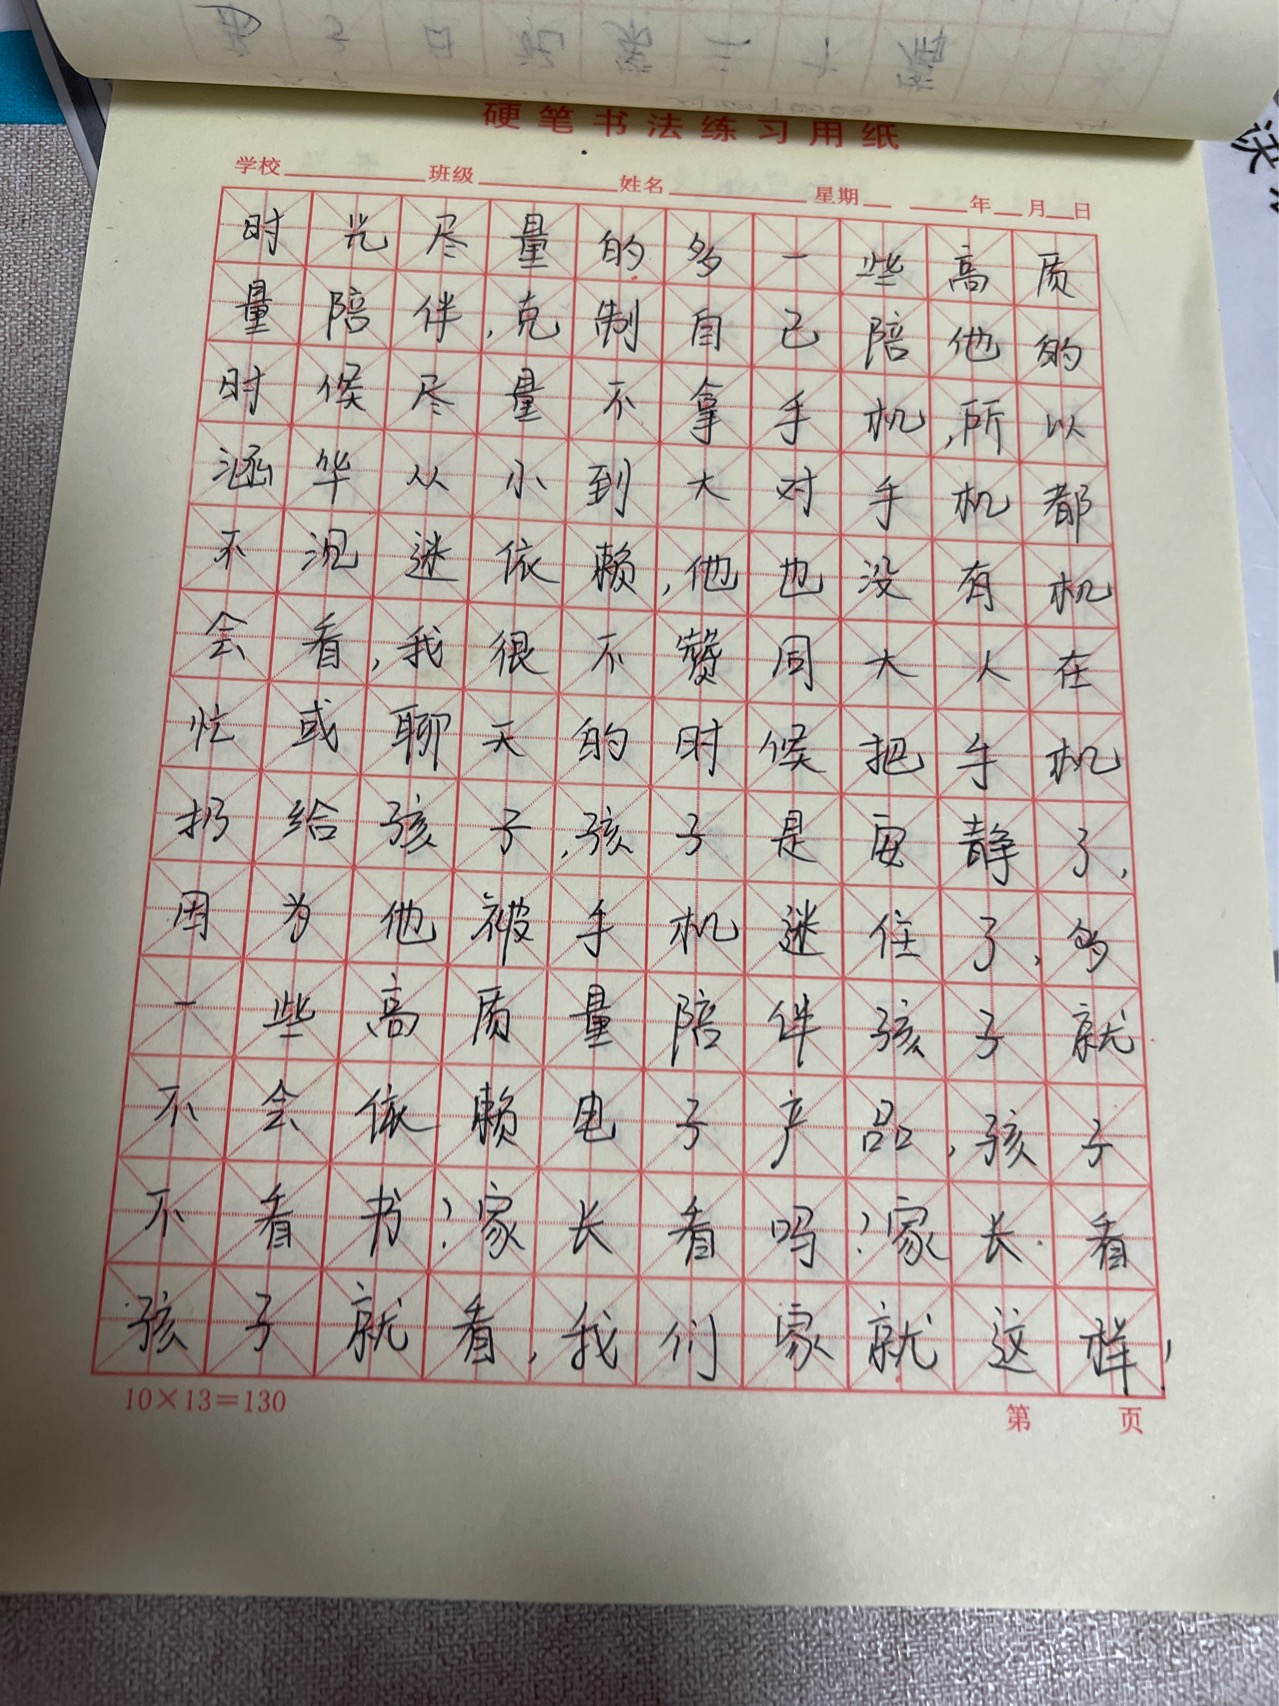 硬笔书法练习用纸
学校 班级 姓名 星期 年 月 日
时光尽量的多一些高质
量陪伴,克制自己陪他的
时候尽量不拿手机,所以
涵华从小到大对手机都
不沉迷依赖,他也没有机
会看,我很不赞同大人在
忙或聊天的时候把手机
扔给孩子,孩子是安静了,
因为他被手机迷住了,多
一些高质量陪伴孩子就
不会依赖电子产品,孩子
不看书?家长看吗?家长看
孩子就看,我们家就这样!
10×13=130
第 页